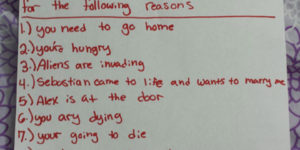 for the following reasons
1.) you need to go home
2.) you're hungry
3.) Aliens are invading
4.) Sebastian came to life and wants to marry me
5) Alex is at the door
6.) you ary dying
7.) your going to die